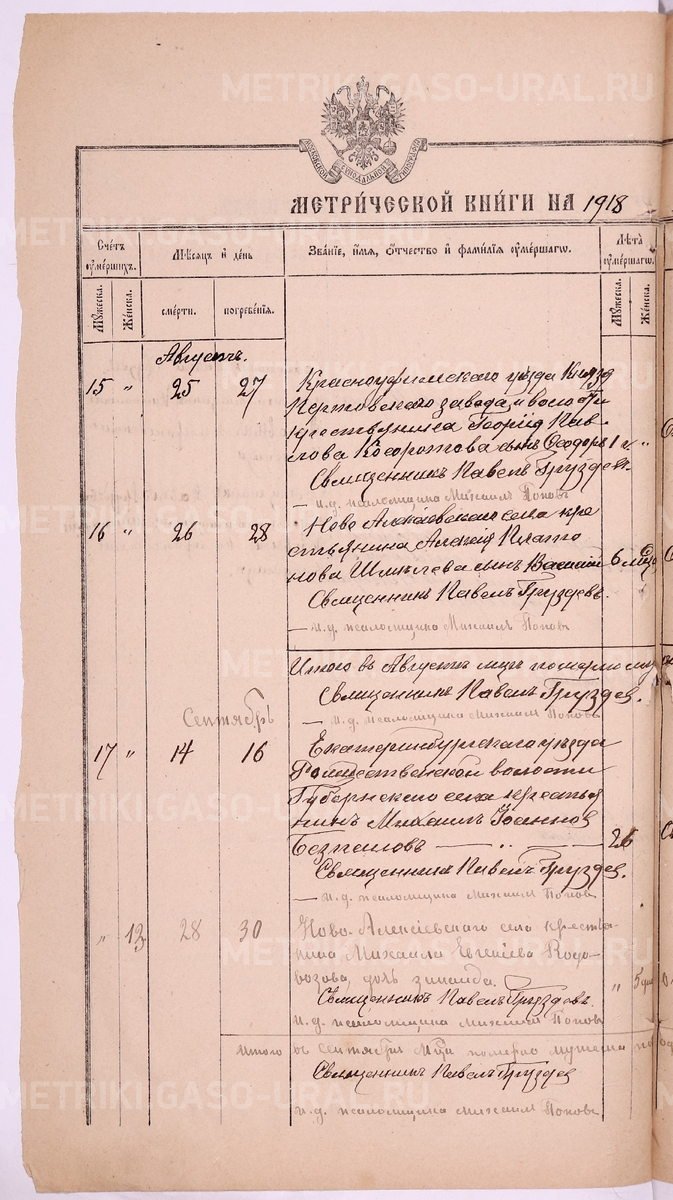 METRIKI.GASO-URAL.RU
МОСКОВСКОЙ СѴНОДАЛЬНОЙ ТИПОГРАФІИ
МЕТРИ́ЧЕСКОЙ КНИ́ГИ НА 1918
Сче́тъ ᲂу҆ме́ршихъ.
Мѣ́сяцъ и҆ де́нь
Зва́нїе, и҆́мѧ, ѻ҆́тчество и҆ фами́лїѧ ᲂу҆ме́ршагѡ.
Лѣ́та ᲂу҆ме́ршагѡ.
Мꙋ́жеска.
Же́нска.
сме́рти.
погребе́нїѧ.
Мꙋ́жеска.
Же́нска.
Августъ.
15 " 25 27 Красноуфимскаго уѣзда
завода и волости
крестьянина Георгія Пав-
лова сынъ Ѳеодоръ 1 г. "
Священникъ Павелъ Груздевъ.
— и. д. псаломщика Михаилъ Поповъ
16 " 26 28 Ново Алексѣевскаго села кре
стьянина Алексія
нова Шмелева сынъ Василій 6 мца
Священникъ Павелъ Груздевъ.
— и. д. псаломщика Михаилъ Поповъ
Итого въ Августѣ мцѣ померло
Священникъ Павелъ Груздев.
Сентябрь
— и. д. псаломщика Михаилъ Поповъ
17 " 14 16 Екатеринбургскаго уѣзда
Рождественской волости
Губернскаго села крестья
нинъ Михаилъ Іоаннов
— " — 26
Священникъ Павелъ Груздев.
— и. д. псаломщика Михаилъ Поповъ
" 13 28 30 Ново-Алексіевскаго села крестья-
нина Михаила Евгеніева Кодо-
возова, дочь Зинаида. " 5 дн
Священникъ Павелъ Груздевъ.
и. д. псаломщика Михаилъ Поповъ
Итого въ сентябрѣ мцѣ померло мужеска по
Священникъ Павелъ Груздев
и. д. псаломщика Михаилъ Поповъ